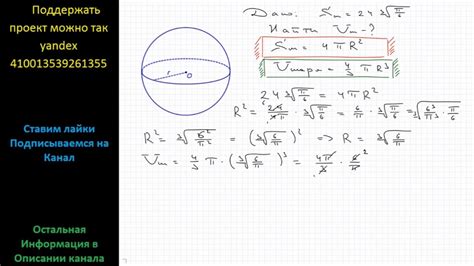 Поддержать
проект можно так
yandex
410013539261355
Ставим лайки
Подписываемся на
Канал
Остальная
Информация в
Описании канала
Дано: Sш = 24 ∛(π/6)
Найти Vш - ?
Sш = 4πR²
Vшара = 4/3 πR³
r O
24 ∛(π/6) = 4πR²
R² =
R² = ∛(6²/π²) = (∛(6/π))² => R = ∛(6/π)
Vш = 4/3 π · (∛(6/π))³ = 4π/3 · 6/π